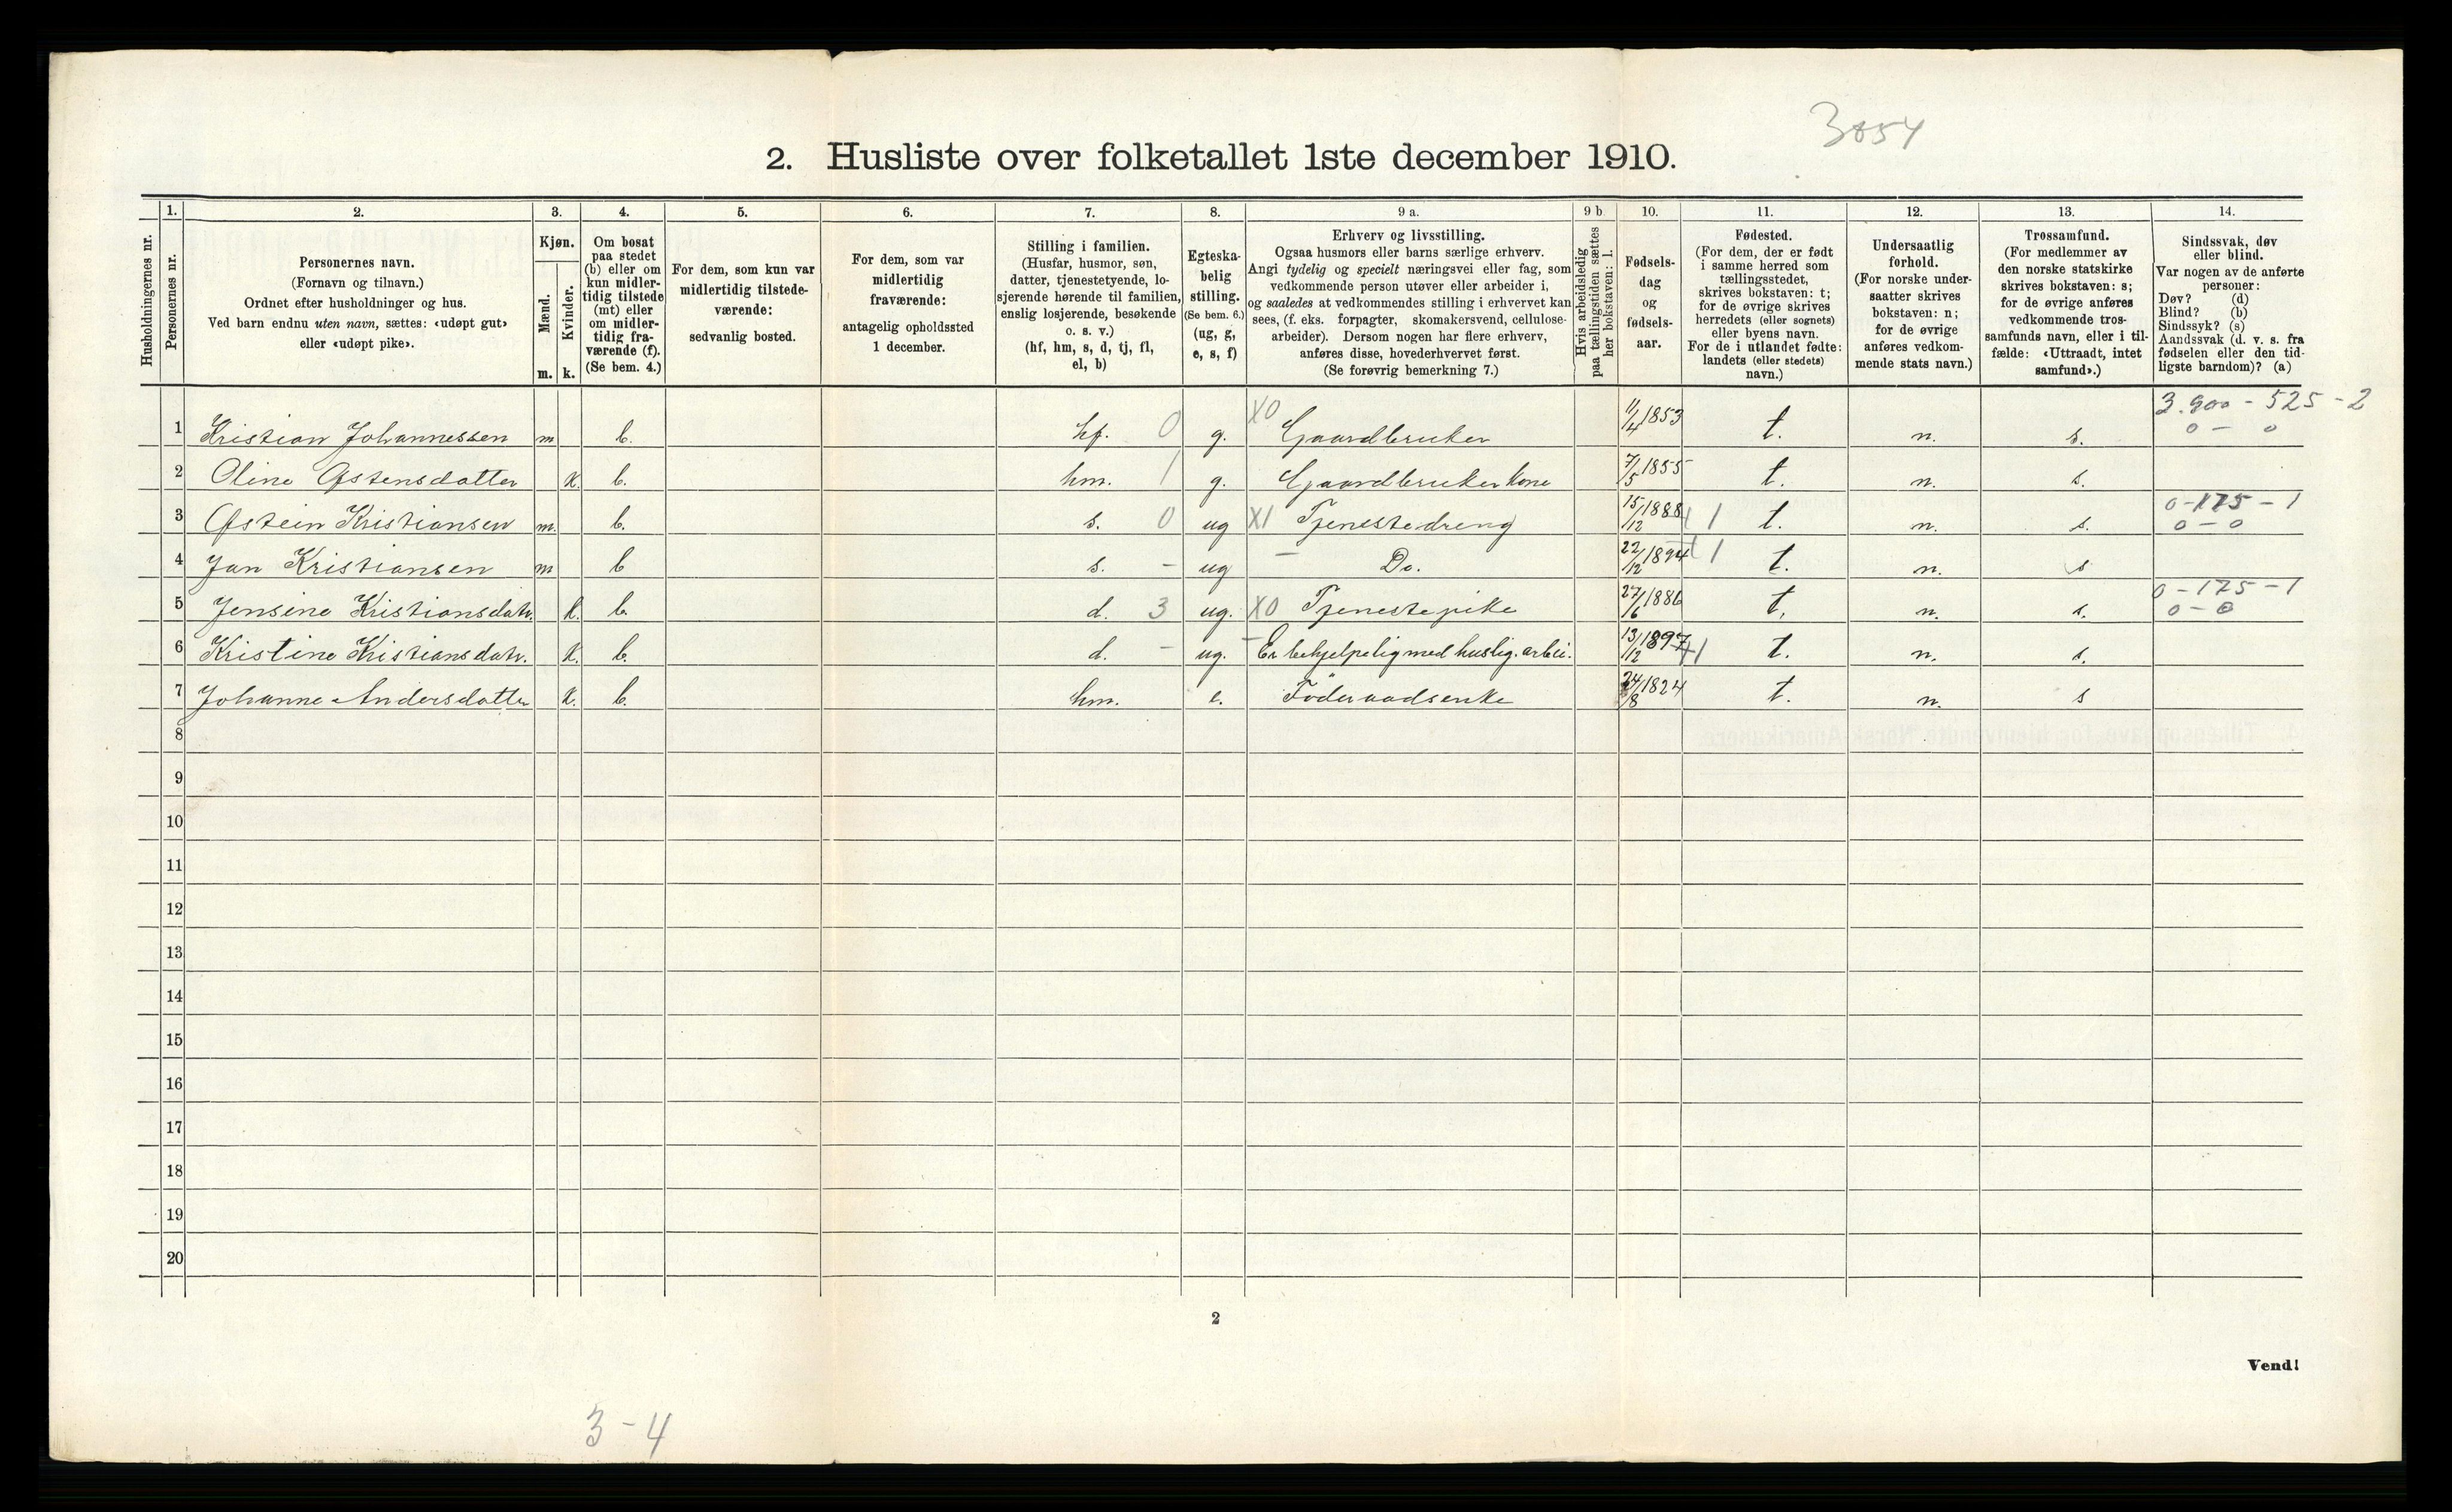 3854
2. Husliste over folketallet 1ste december 1910.
Husholdningernes nr.
1.
Personernes nr.
2.
Personernes navn.
(Fornavn og tilnavn.)
Ordnet efter husholdninger og hus.
Ved barn endnu uten navn, sættes: «udøpt gut»
eller «udøpt pike».
3.
Kjøn.
Mænd.
Kvinder.
m. k.
4.
Om bosat
paa stedet
(b) eller om
kun midler-
tidig tilstede
(mt) eller
om midler-
tidig fra-
værende (f).
(Se bem. 4.)
5.
For dem, som kun var
midlertidig tilstede-
værende:
sedvanlig bosted.
6.
For dem, som var
midlertidig
fraværende:
antagelig opholdssted
1 december.
7.
Stilling i familien.
(Husfar, husmor, søn,
datter, tjenestetyende, lo-
sjerende hørende til familien,
enslig losjerende, besøkende
o. s. v.)
(hf, hm, s, d, tj, fl,
el, b)
8.
Egteska-
belig
stilling.
(Se bem. 6.)
(ug, g,
e, s, f)
9 a.
Erhverv og livsstilling.
Ogsaa husmors eller barns særlige erhverv.
Angi tydelig og specielt næringsvei eller fag, som
vedkommende person utøver eller arbeider i,
og saaledes at vedkommendes stilling i erhvervet kan
sees, (f. eks. forpagter, skomakersvend, cellulose-
arbeider). Dersom nogen har flere erhverv,
anføres disse, hovederhvervet først.
(Se forøvrig bemerkning 7.)
9 b
Hvis arbeidsledig
paa tællingstiden sættes
her bokstaven: l.
10.
Fødsels-
dag
og
fødsels-
aar.
11.
Fødested.
(For dem, der er født
i samme herred som
tællingsstedet,
skrives bokstaven: t;
for de øvrige skrives
herredets (eller sognets)
eller byens navn.
For de i utlandet fødte:
landets (eller stedets)
navn.)
12.
Undersaatlig
forhold.
(For norske under-
saatter skrives
bokstaven: n;
for de øvrige
anføres vedkom-
mende stats navn.)
13.
Trossamfund.
(For medlemmer av
den norske statskirke
skrives bokstaven: s;
for de øvrige anføres
vedkommende tros-
samfunds navn, eller i til-
fælde: «Uttraadt, intet
samfund».)
14.
Sindssvak, døv
eller blind.
Var nogen av de anførte
personer:
Døv? (d)
Blind? (b)
Sindssyk? (s)
Aandssvak (d. v. s. fra
fødselen eller den tid-
ligste barndom)? (a)
1 Kristian Johannessen m b. hf. 0 g. X0 Gaardbruker 11/4 1853 t. n. s. 3.900 - 525 - 2
0 - 0
2 Oline Østensdatter k. b. hm. 1 g. Gaardbruker kone 7/5 1855 t. n. s.
3 Østein Kristiansen m. b. s. 0 ug X1 Tjenestedreng 15/12 1888 1 t. n. s. 0-175-1
0-0
4 Jan Kristiansen m b s. - ug - Do. 22/12 1894 1 t. n. s
5 Jensine Kristiansdatr. k. b. d. 3 ug. X0 Tjenestepike 27/6 1886 t. n. s. 0-175-1
0-0
6 Kristine Kristiansdatr. k. b. d. - ug. - Er behjelpelig med huslig. arbei. 13/12 1897 1 t. n. s.
7 Johanne Andersdatter k. b. hm. e. Föderaadsenke 24/8 1824 t. n. s
8
9
10
11
12
13
14
15
16
17
18
19
20
2
Vend!
3-4